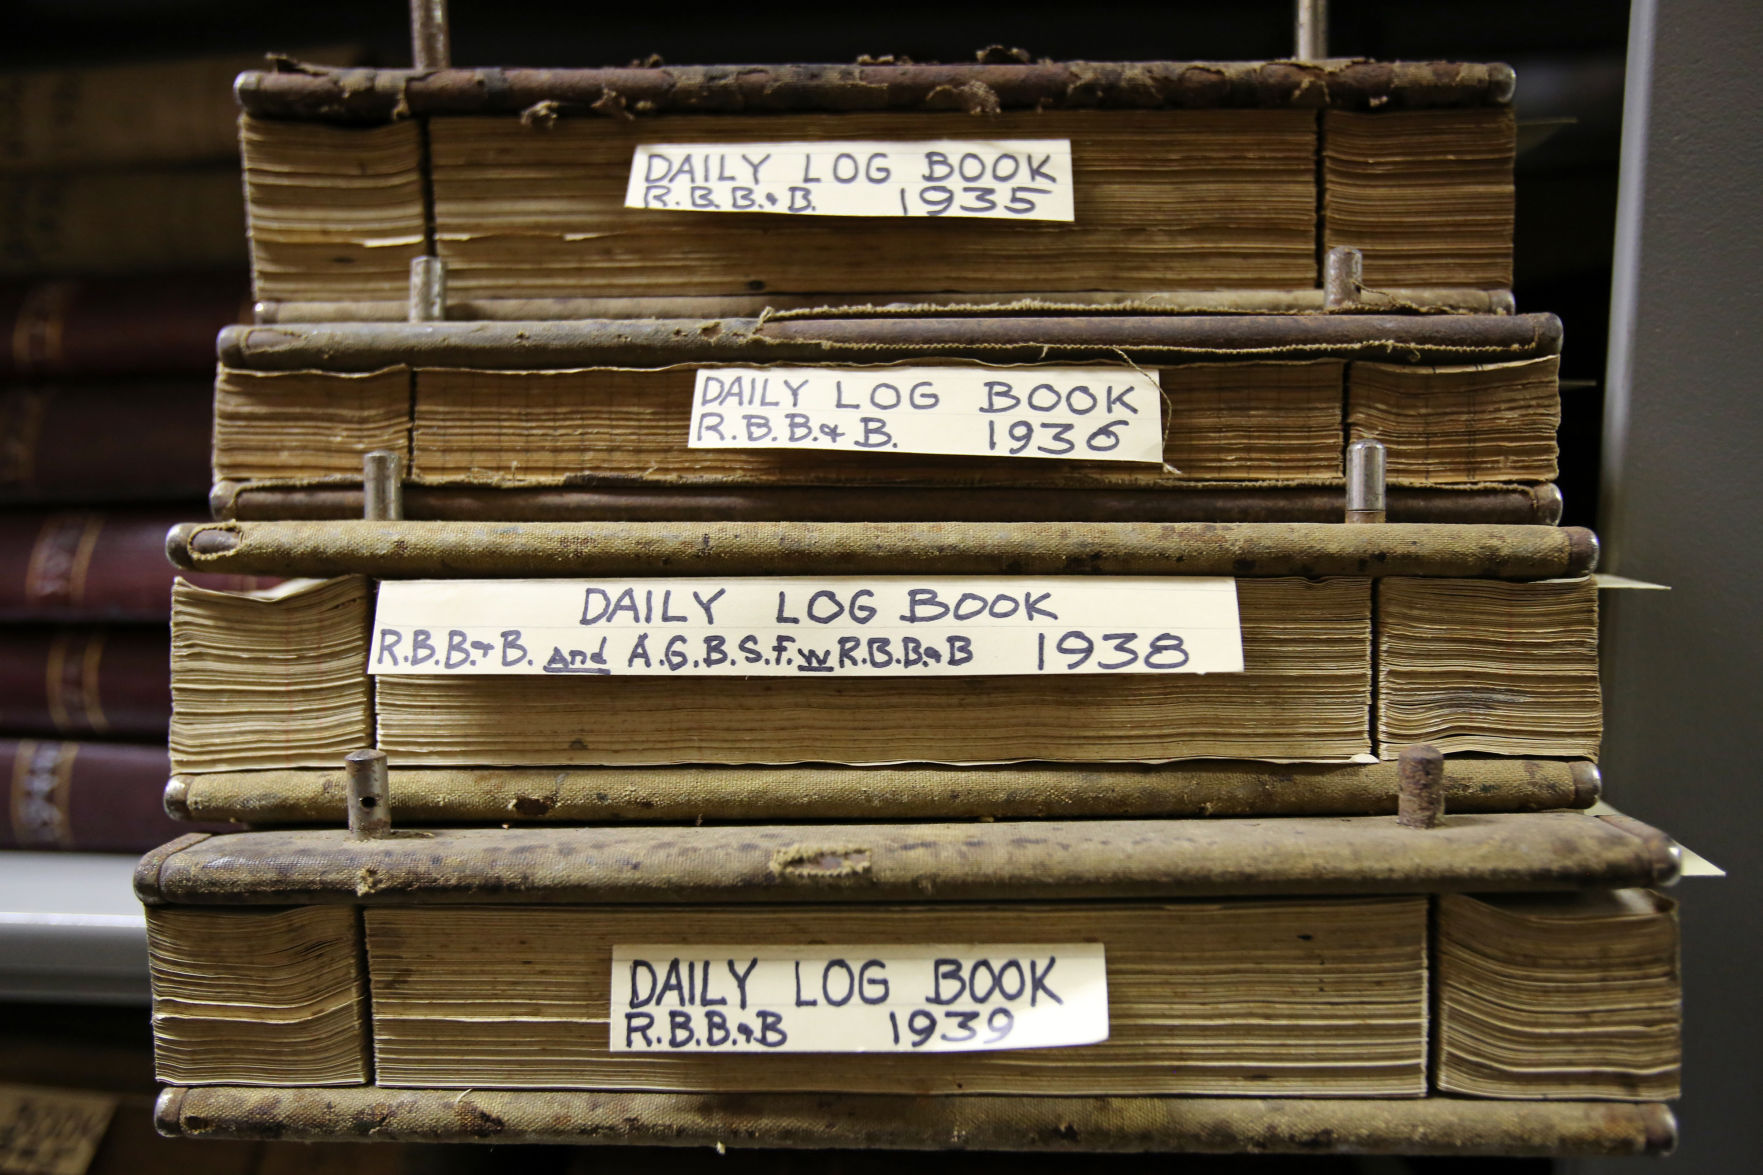 DAILY LOG BOOK
R.B.B.&B. 1935
DAILY LOG BOOK
R.B.B.& B. 1936
DAILY LOG BOOK
R.B.B.&B. and A.G.B.S.F. w R.B.B&B 1938
DAILY LOG BOOK
R.B.B.&B 1939